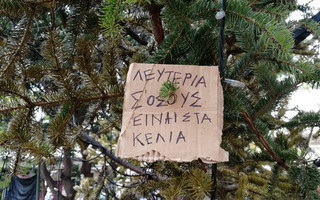 ΛΕΥΤΕΡΙΑ
Σ'ΟΣΟΥΣ
ΕΙΝΑΙ ΣΤΑ
ΚΕΛΙΑ